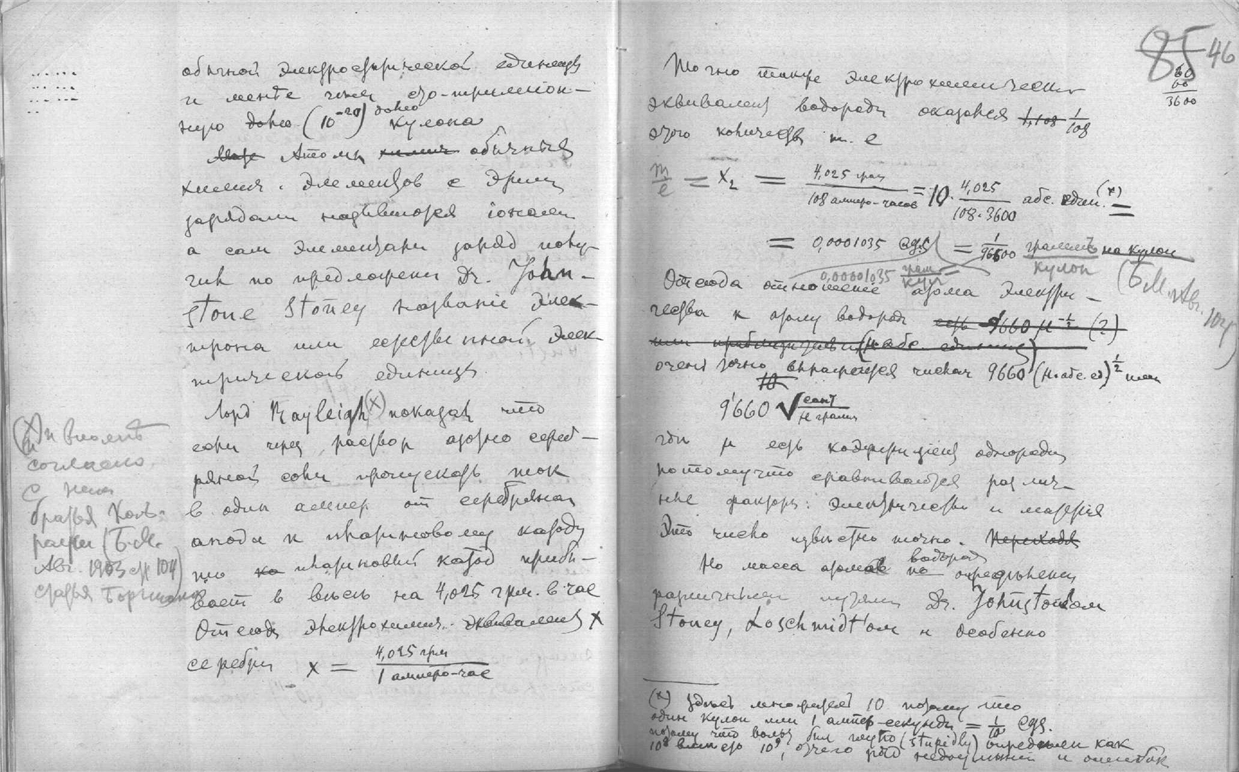 обычной электростатической единицы
и менее чем сто-триллион-
ную долю (10⁻²⁰) кулона
Атомы химич обычных
химич. элементов с этими
зарядами называются іонами
а сам элементарн заряд полу-
чил по предложен Dr. John-
stone Stoney название элек-
трона или естественной элек
трической единицы.
Лорд Rayleigh (x) показал что
если через раствор азотно сереб-
ряной соли пропускать ток
в один ампер от серебряного
анода к платиновому катоду
то платиновый катод прибы-
вает в весе на 4,025 грм. в час
Отсюда электрохимич. эквивалент x
серебра x = 4,025 грм / 1 амперо-час
(x) и вполне
согласно
с ним
братья Коль-
рауш (Б.М.
Авг. 1903 стр 104)
статья Боргмана
85 46
60
60
3600
Точно также электрохимическ
эквивалент водорода оказался 1,108 1/108
этого количеств т. е
m/e = x₂ = 4,025 грм / 108 амперо-часов = 10 · 4,025 / 108·3600 абс. един. (x) =
= 0,0001035 CgS = 1/96600 граммъ на кулон
кулон
0,00001035 грам/кул =
(Б.М. Авг. 104)
Отсюда отношение атома электри-
чества к атому водорода есть 9660 μ^-½ (2)
или приблизительно (μ абс. единиц)
очень точно выражается числом 9660 (μ.абс.ед)^½ или
10
9660 √ сант / μ грамм
где μ есть коэффициент однородн
потому что сравниваются различ-
ные факторы: электричество и материя
Это число известно точно. Переходя
Но масса атома водорода определена
различными путями Dr. Johnston'ом
Stoney, Loschmidt'ом и особенно
(x) Здесь множится 10 потому что
один кулон или 1 ампер-секунда = 1/10 CgS.
потому что вольт был глупо (stupidly) определен как
10⁸ вместо 10⁹, отчего ряд недоразумений и ошибок